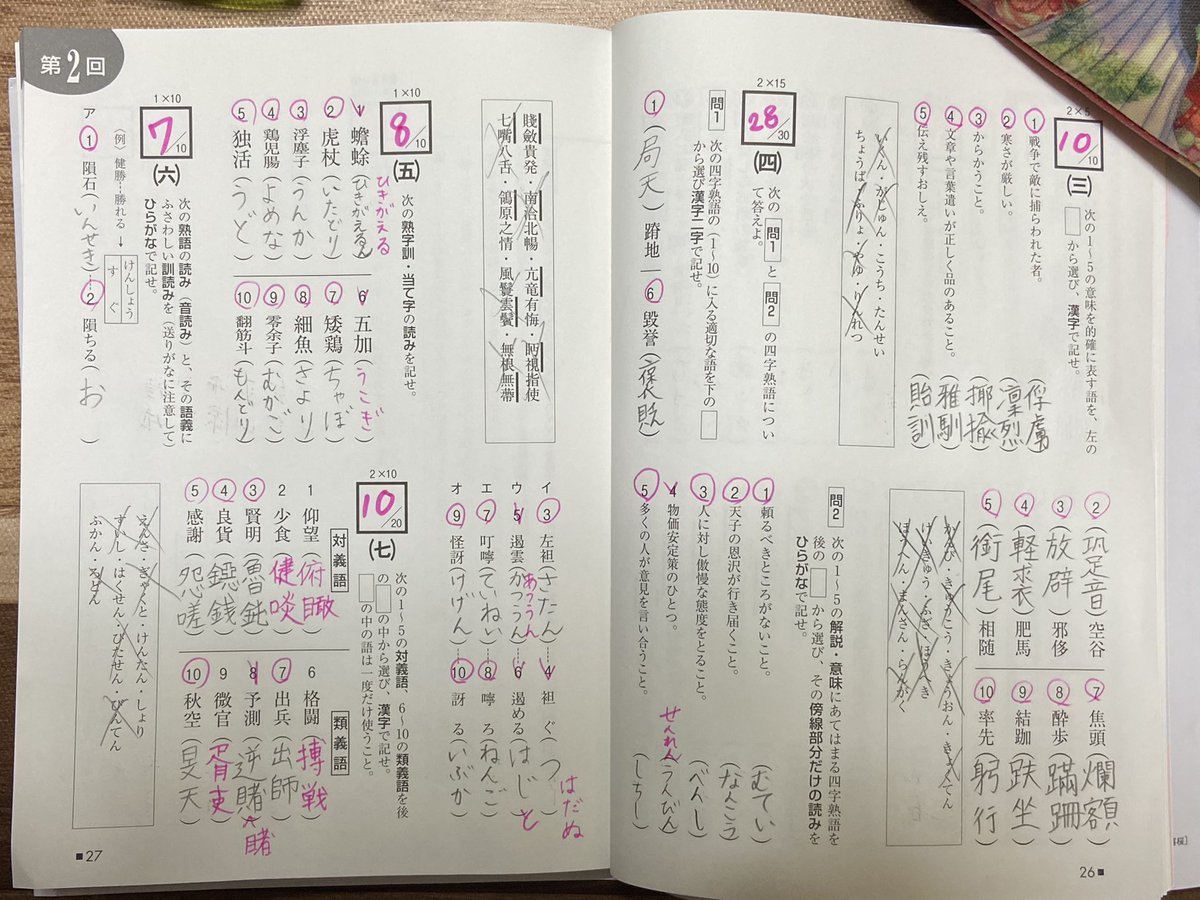 2×5
10/10
(三)
次の1~5の意味を的確に表す語を、左の
□から選び、漢字で記せ。
1 戦争で敵に捕らわれた者。(俘虜)
2 寒さが厳しい。(凜烈)
3 からかうこと。(揶揄)
4 文章や言葉遣いが正しく品のあること。(雅馴)
5 伝え残すおしえ。(貽訓)
いん・がじゅん・こうち・たんせい
ちょうば・ふりょ・やゆ・りんれつ
2×15
28/30
(四)
次の問1と問2の四字熟語につい
て答えよ。
問1
次の四字熟語の(1~10)に入る適切な語を下の□
から選び漢字二字で記せ。
1(局天)蹐地
6 毀誉(褒貶)
2(跫音)空谷
3(放辟)邪侈
4(軽裘)肥馬
5(銜尾)相随
7 焦頭(爛額)
8 酔歩(蹣跚)
9 結跏(趺坐)
10 率先(躬行)
かんび・きゅうこう・きょうおん・きょくてん
けいきゅう・ふざ・ほうへき
ほうへん・まんさん・らんがく
問2
次の1~5の解説・意味にあてはまる四字熟語を
後の□から選び、その傍線部分だけの読みを
ひらがなで記せ。
1 頼るべきところがないこと。(むてい)
2 天子の恩沢が行き届くこと。(なんこう)
3 人に対し傲慢な態度をとること。(べんし)
4 物価安定策のひとつ。(うんびん)せんれん
5 多くの人が意見を言い合うこと。(しちし)
26
第2回
賤斂貴発・南洽北暢・亢竜有悔・眄視指使
七嘴八舌・鴒原之情・風鬟雲鬢・無根無蔕
1×10
8/10
(五)
次の熟字訓・当て字の読みを記せ。
1 蟾蜍(ひきがえるん)ひきがえる
2 虎杖(いたどり)
3 浮塵子(うんか)
4 鶏児腸(よめな)
5 独活(うど)
6 五加(うこぎ)
7 矮鶏(ちゃぼ)
8 細魚(さより)
9 零余子(むかご)
10 翻筋斗(もんどり)
1×10
7/10
(六)
次の熟語の読み(音読み)と、その語義に
ふさわしい訓読みを(送りがなに注意して)
ひらがなで記せ。
〈例〉健勝…勝れる→けんしょう
すぐ
ア 1 隕石(いんせき)…2 隕ちる(お)
イ 3 左袒(さたん)…4 袒ぐ(つ)はだぬ
ウ 5 遏雲(かつうん)あつうん…6 遏める(はじ)と
エ 7 叮嚀(ていねい)…8 嚀ろ(ねんご)
オ 9 怪訝(けげん)…10 訝る(いぶか)
2×10
10/20
(七)
次の1~5の対義語、6~10の類義語を後
の□の中から選び、漢字で記せ。
□の中の語は一度だけ使うこと。
対義語
1 仰望(俯瞰)
2 少食(健啖)
3 賢明(魯鈍)
4 良貨(鐚銭)
5 感謝(怨嗟)
類義語
6 格闘(搏戦)
7 出兵(出師)
8 予測(逆賭)賭
9 微官(胥吏)
10 秋空(旻天)
えんさ・ぎゃくと・けんたん・しょり
すいし・はくせん・びたせん・びんてん
ふかん・ろどん
27